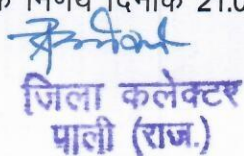 निर्णय दिनांक 21.0
जिला कलेक्टर
पाली (राज.)